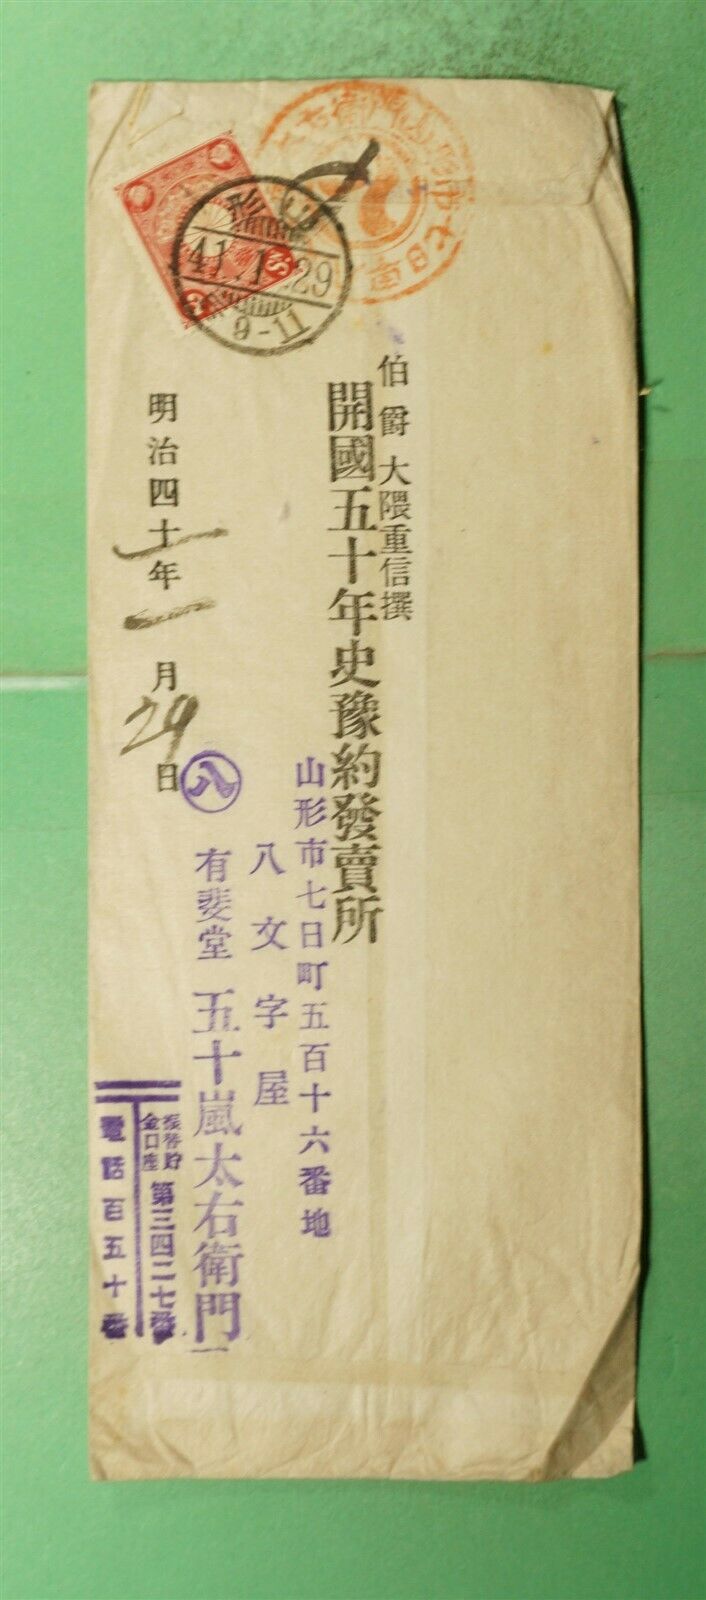 伯爵 大隈重信撰
開國五十年史豫約發賣所
山形市七日町五百十六番地
八文字屋
有斐堂 五十嵐太右衛門
八
明治四十年一月29日
振替貯
金口座
第三四二七番
電話百五十番
山形
41.1.29
9-11